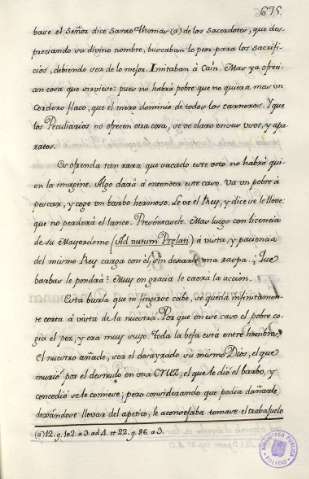 675.
base el Señor dice Santo Thomas (a) de los sacerdotes, que des-
preciando su divino nombre, buscaban lo peor para los sacrifi-
cios, debiendo ser de lo mejor. Imitaban à Caín. Mas ya ofreci-
an cosa que sirviese: pues no habrá pobre que no quiera mas un
Cordero flaco, que el mero dominio de todos los carneros. Y que
los Peculiarios no ofrecen otra cosa, se ve claro en sus usos, y apa-
ratos.
Es ofrenda tan rara que sacado este voto no habrá qui-
en la imagine. Algo dará à entender este caso. Va un pobre à
pescar, y coge un barbo hermoso. Le ve el Rey, y dice se le lleve:
que no perderá el lance. Mas luego con licencia
de su Mayordomo (Ad nutum Prelati) à vista, y paciencia
del mismo Rey carga con el, sin dexarle una raspa. ¿Que
barbas le pondrá? Muy en gracia le caera la accion.
Esta burla que ni fingirse cabe, se queda infinitamente
corta à vista de la nuestra. Por que en ese caso el pobre co-
gio el pez, y era muy suyo. Toda la befa está entre hombres.
El nuestro añade, sea el desayrado su mismo Dios, el que
murió por el desnudo en una Cruz, el que le dió el barbo, y
concedió se le comiese; pero considerando que podia dañarle
dexandose llevar del apetito, le aconsejaba tomase el trabajuelo
(a) 12. q. 102. a 3. ad 4. et 22. q. 86. a 3.